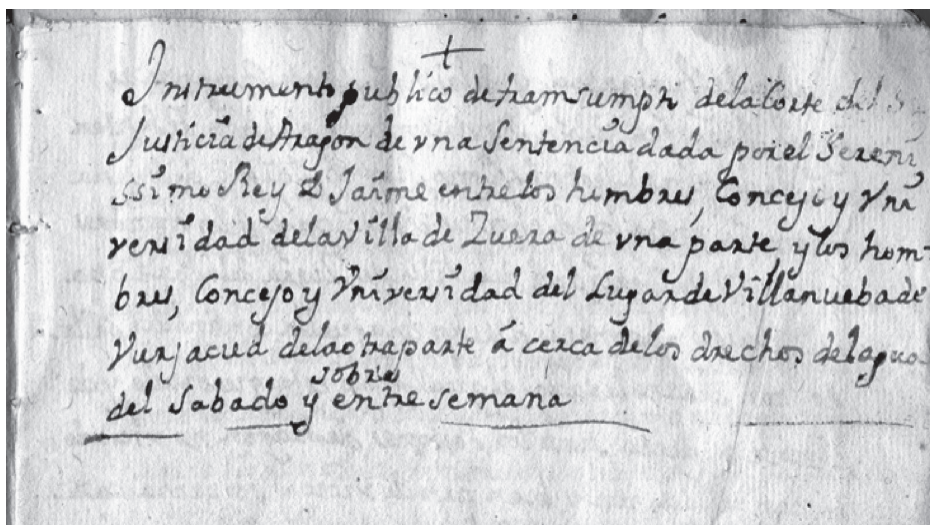 +
Instrumento publico de transumpto dela Corte del
Justicia de Aragon de vna Sentencia dada por el Sereni
ssimo Rey D Jaime entre los hombres, Concejo y Vni
versidad dela Villa de Zuera de vna parte, y los hom-
bres, Concejo y Vniversidad del Lugar de Villanueba de
Vurjacud dela otra parte á cerca de los drechos del agua
sobre
del Sabado y entre semana